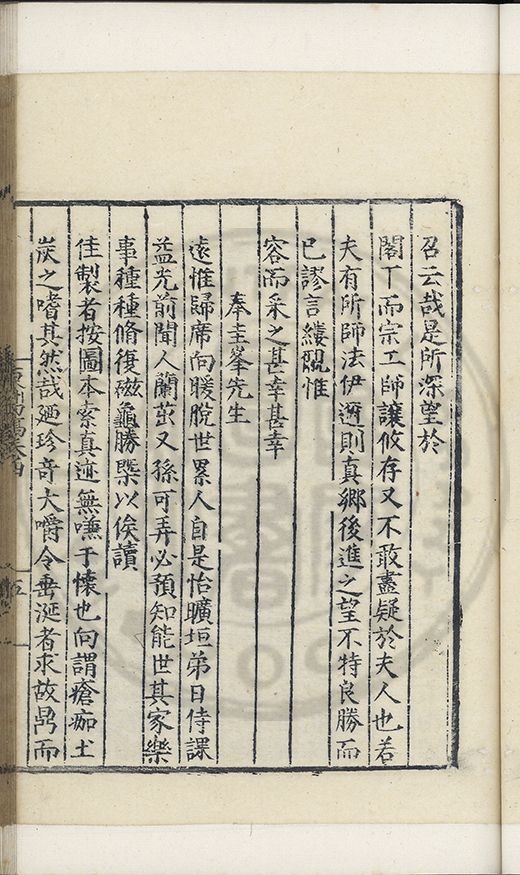 召云哉是所深望於
閣下而宗工師讓攸存又不敢盡疑於夫人也若
夫有所師法伊邇則真鄉後進之望不特良勝而
已謬言縷覶惟
容而采之甚幸甚幸
奉圭峯先生
遠惟歸席向暖脫世累人自是怡曠垣弟日侍課
益光前聞人蘭茁又孫可弄必預知能世其家樂
事種種脩復磁龜勝槩以俟讀
佳製者按圖本索真迹無嗛于懷也向謂瘡痂土
炭之嗜其然哉廼珍奇大嚼令垂涎者求故鼎而